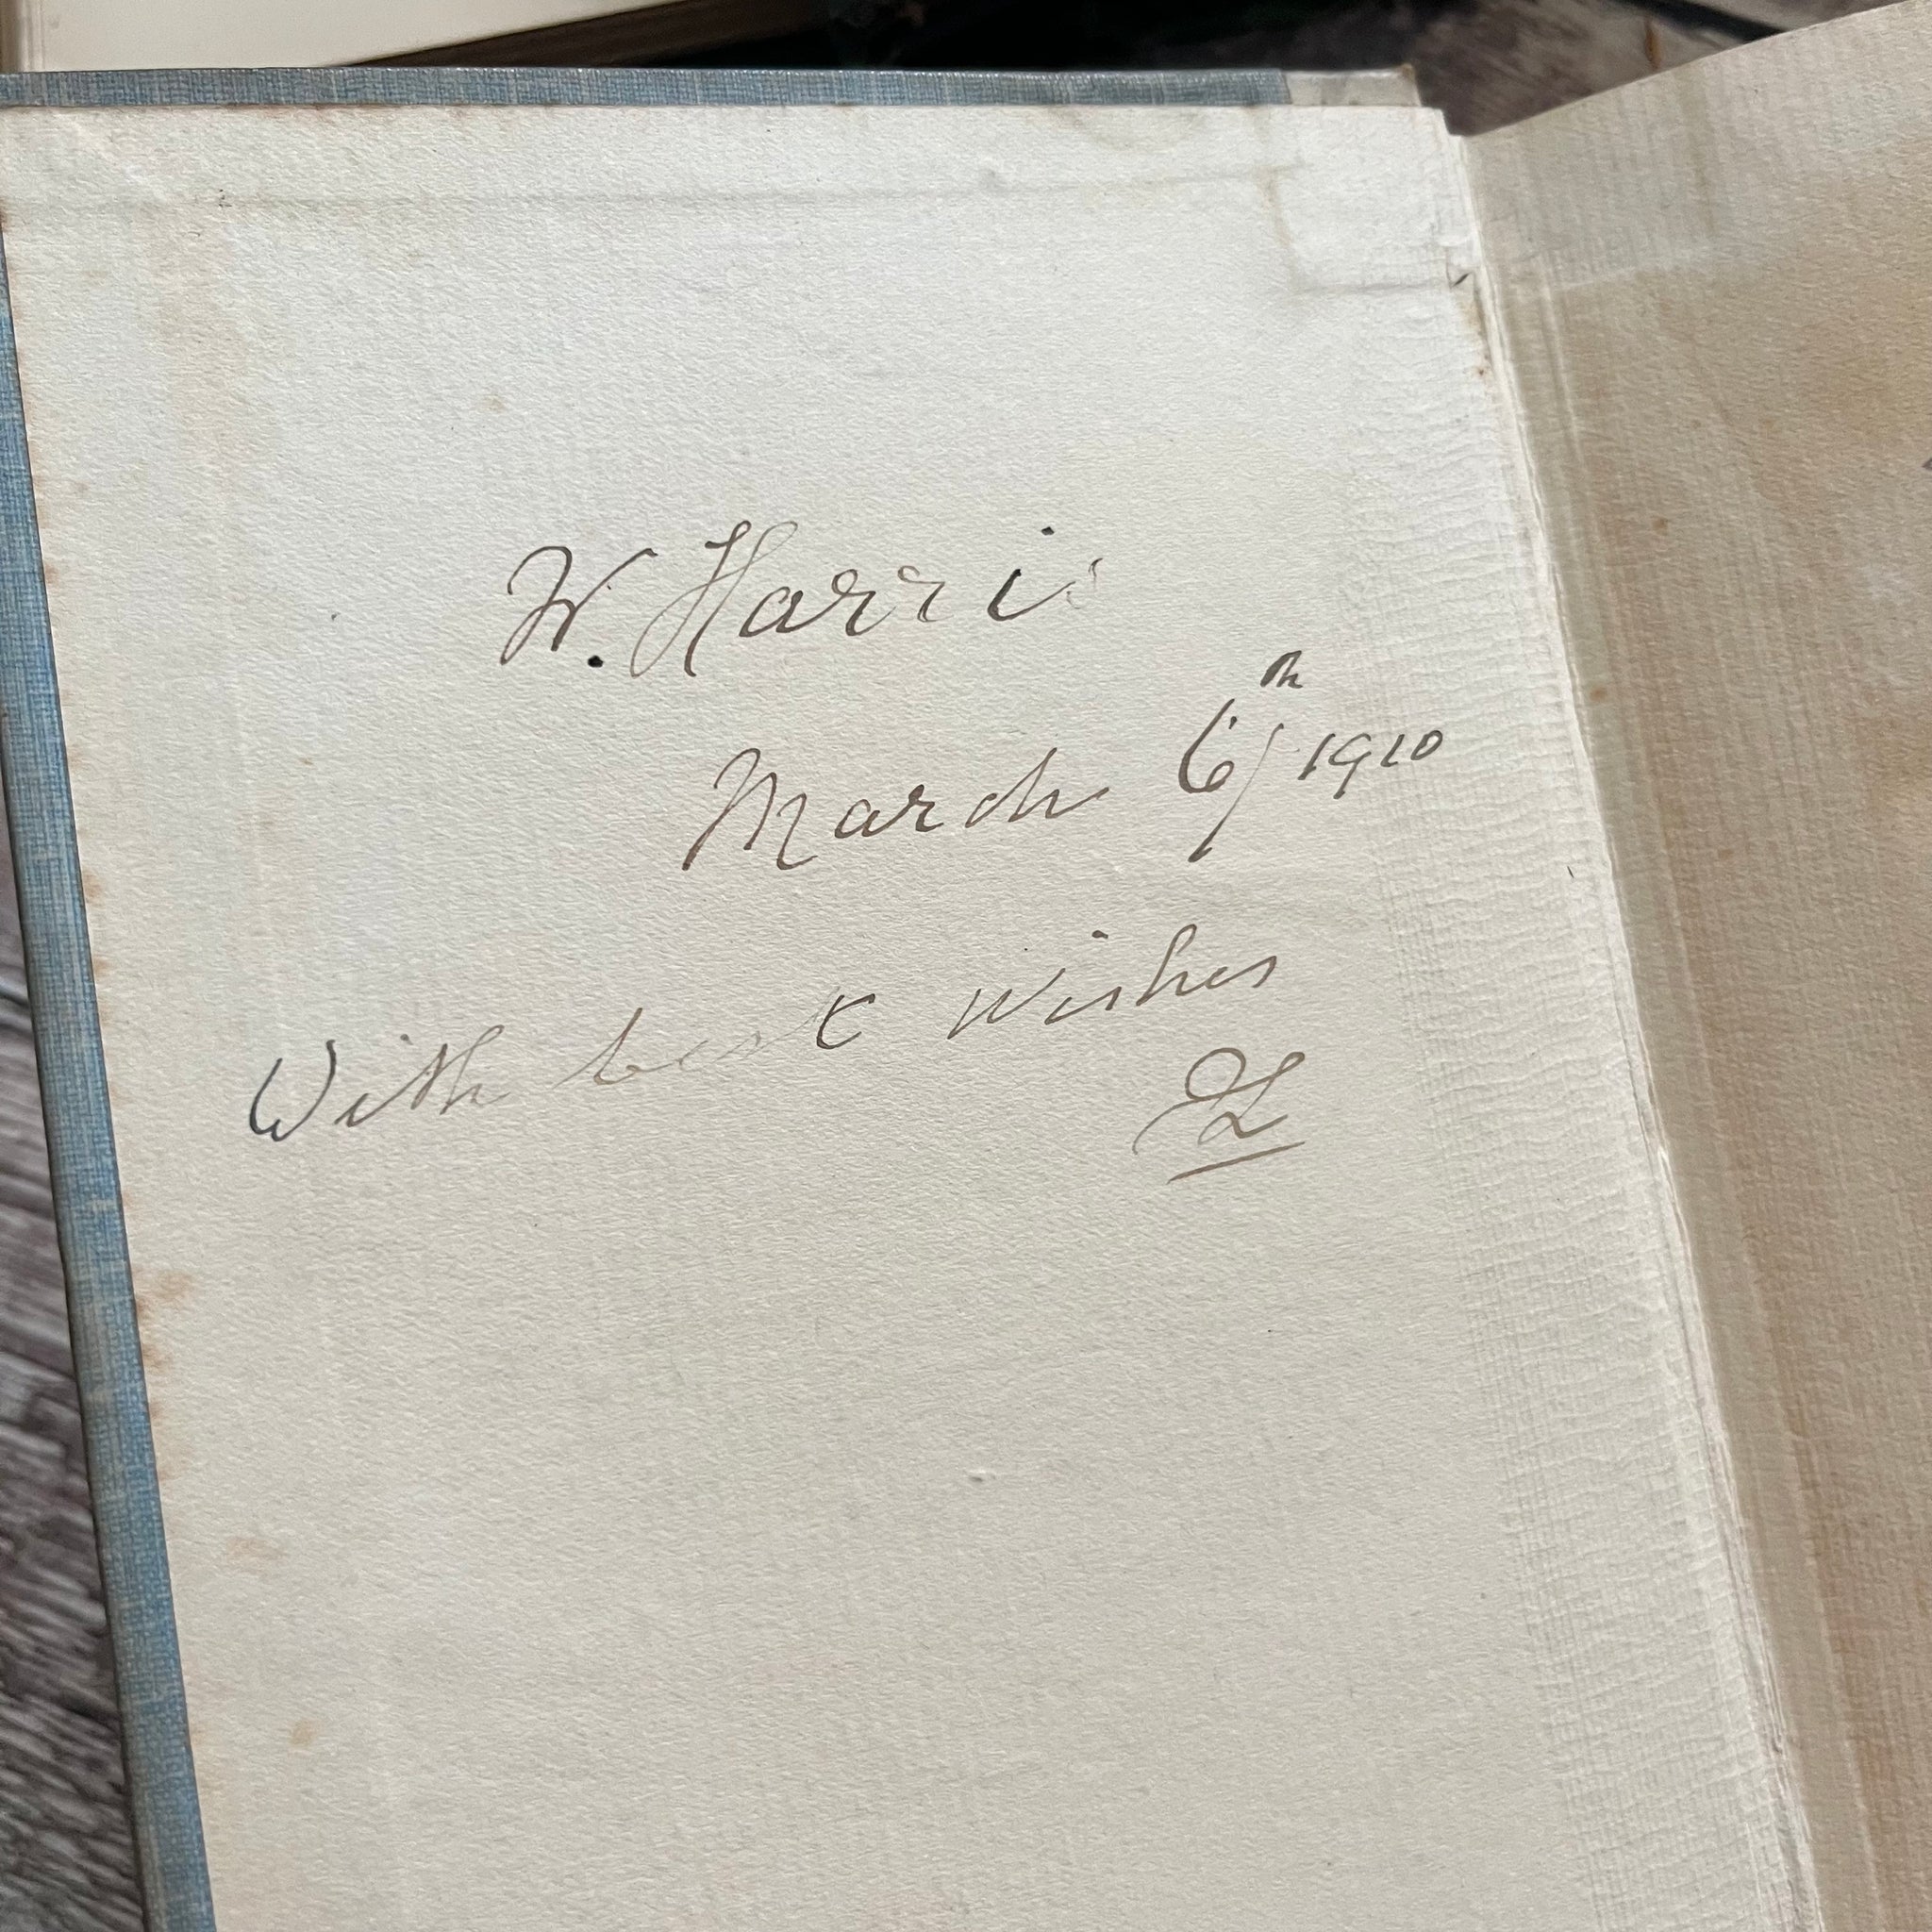 W. Harris
March 6th/1910
With best wishes